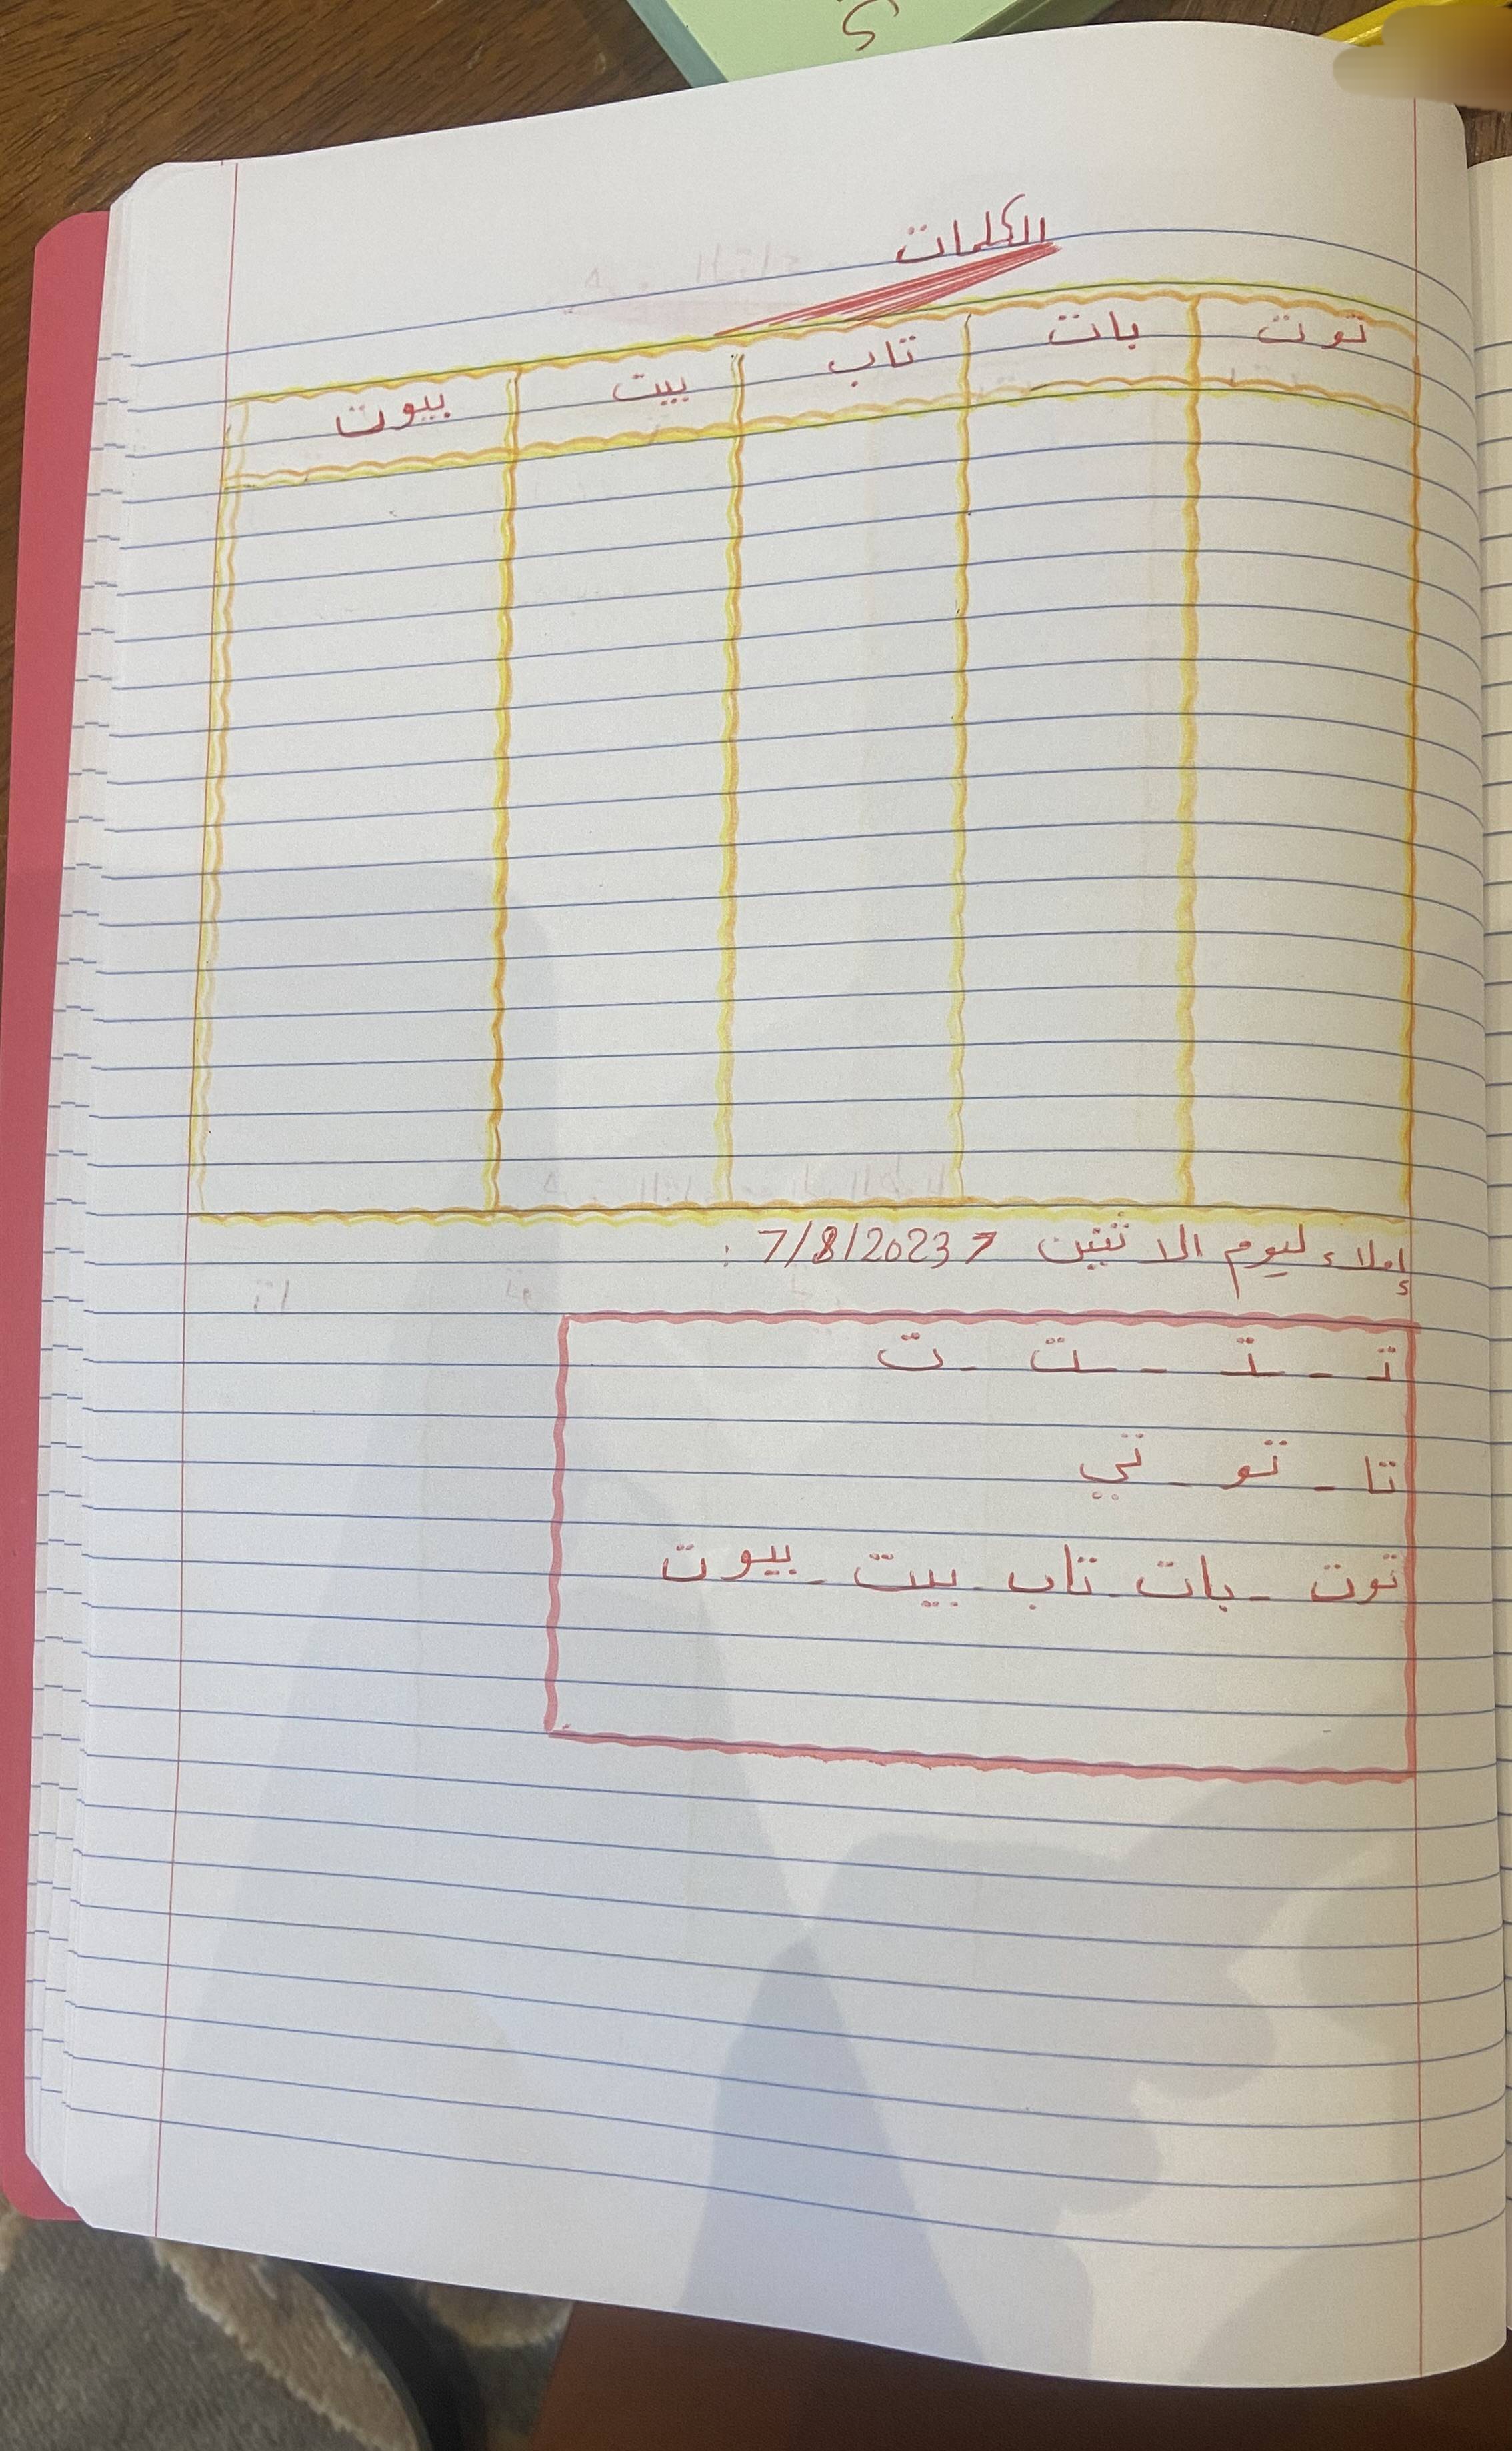 الكلمات
توت بات تاب بيت بيوت
إملاء ليوم الاثنين 7/8/2023 :
تـ - ـتـ - ـت - ت
تا - تو - تي
توت - بات - تاب - بيت - بيوت